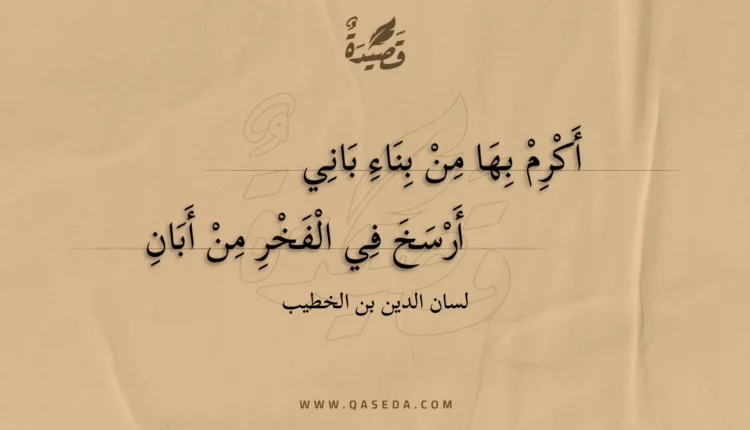 قَصِيْدَةٌ
أَكْرِمْ بِهَا مِنْ بِنَاءِ بَانِي
أَرْسَخَ فِي الْفَخْرِ مِنْ أَبَانِ
لسان الدين بن الخطيب
WWW.QASEDA.COM